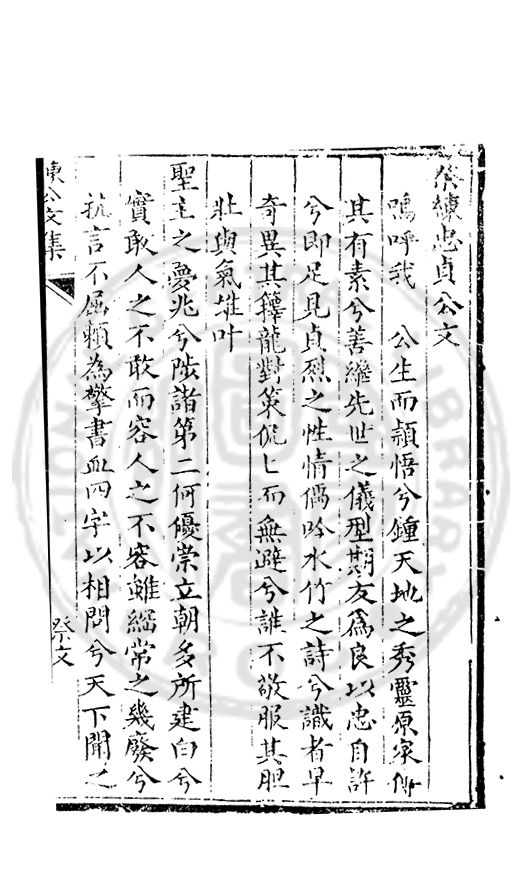 祭練忠貞公文
嗚呼我 公生而頴悟兮鍾天地之秀靈原家傳
其有素兮善繼先世之儀型期友爲良以忠自許
兮即足見貞烈之性情偶吟水竹之詩兮識者早
奇異其籜龍對策侃匕而無避兮誰不敬服其胆
壯與氣雄叶
聖主之夢兆兮陟諸第二何優崇立朝多所建白兮
實敢人之不敢而容人之不容雖綱常之幾廢兮
抗言不屈頼為擎書血四字以相問兮天下聞之
練公文集
祭文